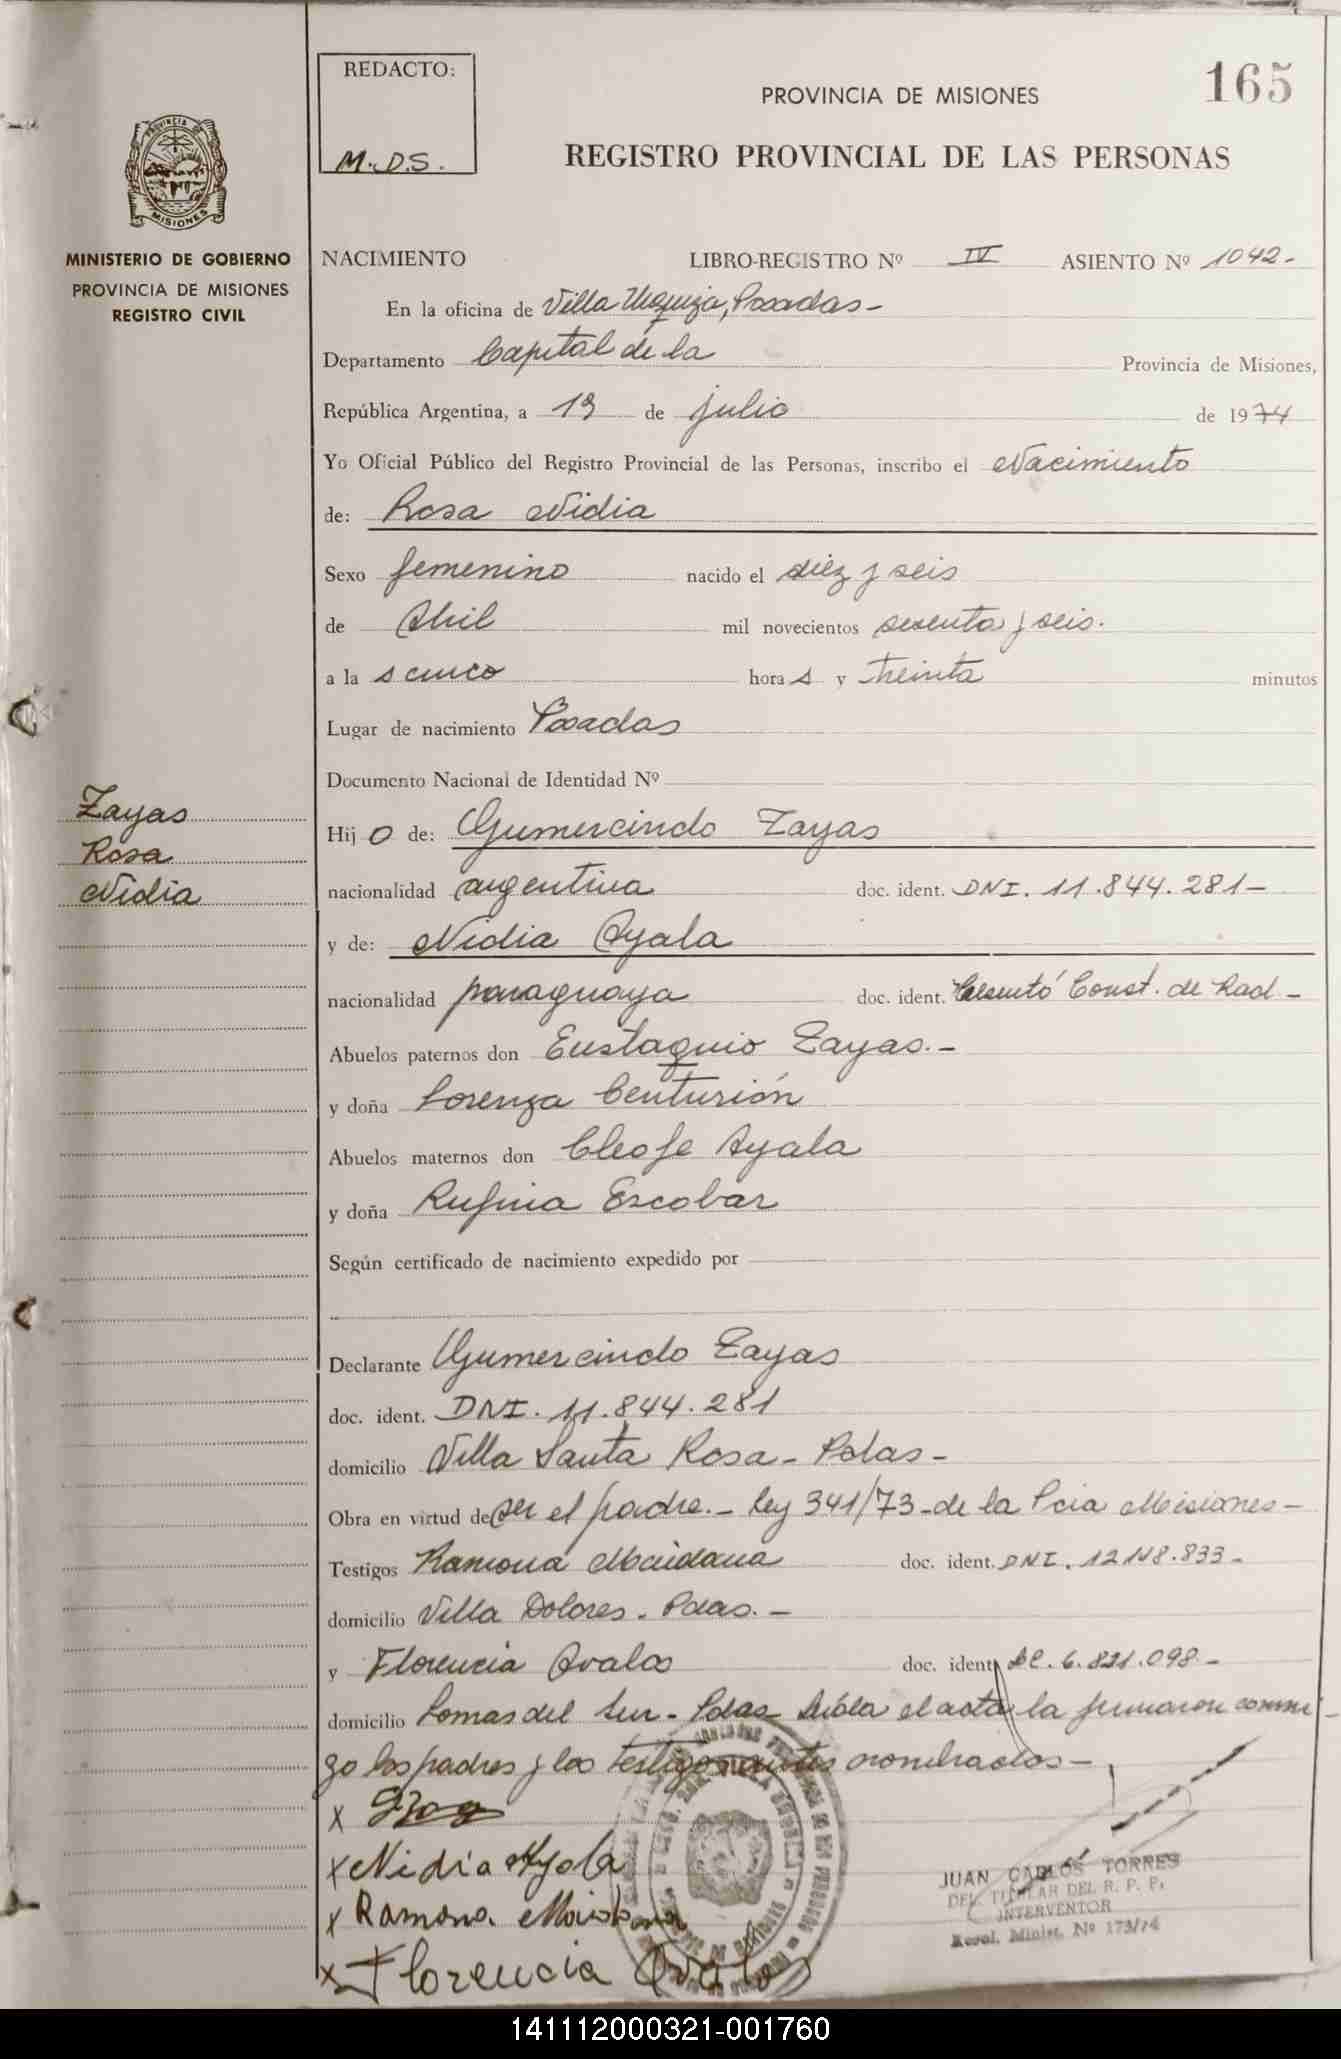 REDACTO:
M.D.S.
165
PROVINCIA DE MISIONES
REGISTRO PROVINCIAL DE LAS PERSONAS
PROVINCIA DE
MISIONES
MINISTERIO DE GOBIERNO
PROVINCIA DE MISIONES
REGISTRO CIVIL
NACIMIENTO LIBRO-REGISTRO Nº IV ASIENTO Nº 1042-
En la oficina de Villa Urquiza, Posadas-
Departamento Capital de la Provincia de Misiones,
República Argentina, a 19 de julio de 1974
Yo Oficial Público del Registro Provincial de las Personas, inscribo el Nacimiento
de: Rosa Nidia
Sexo femenino nacido el diez y seis
de Abril mil novecientos sesenta y seis.
a la s cinco hora s y treinta minutos
Lugar de nacimiento Posadas
Documento Nacional de Identidad Nº
Zayas
Rosa
Nidia
Hij o de: Gumercindo Zayas
nacionalidad argentina doc. ident. DNI. 11.844.281-
y de: Nidia Ayala
nacionalidad paraguaya doc. ident. Presentó Const. de Rad-
Abuelos paternos don Eustaquio Zayas.-
y doña Lorenza Centurión
Abuelos maternos don Cleofe Ayala
y doña Rufina Escobar
Según certificado de nacimiento expedido por
Declarante Gumercindo Zayas
doc. ident. DNI. 11.844.281
domicilio Villa Santa Rosa- Pdas-
Obra en virtud de ser el padre.- Ley 341/73-de la Pcia Misiones-
Testigos Ramona Maidana doc. ident. DNI. 12.148.833-
domicilio Villa Dolores. Pdas.-
y Florencia Ovalos doc. ident. LC. 6.821.098-
domicilio Lomas del Sur- Pdas Leída el acta la firmaron conmi-
go los padres y los testigos antes nombrados-
x
x Nidia Ayala
x Ramona. Maidana
x Florencia Ovalos
JUAN CARLOS TORRES
DEL. TITULAR DEL R. P. P.
INTERVENTOR
Resol. Minist. Nº 173/74
141112000321-001760